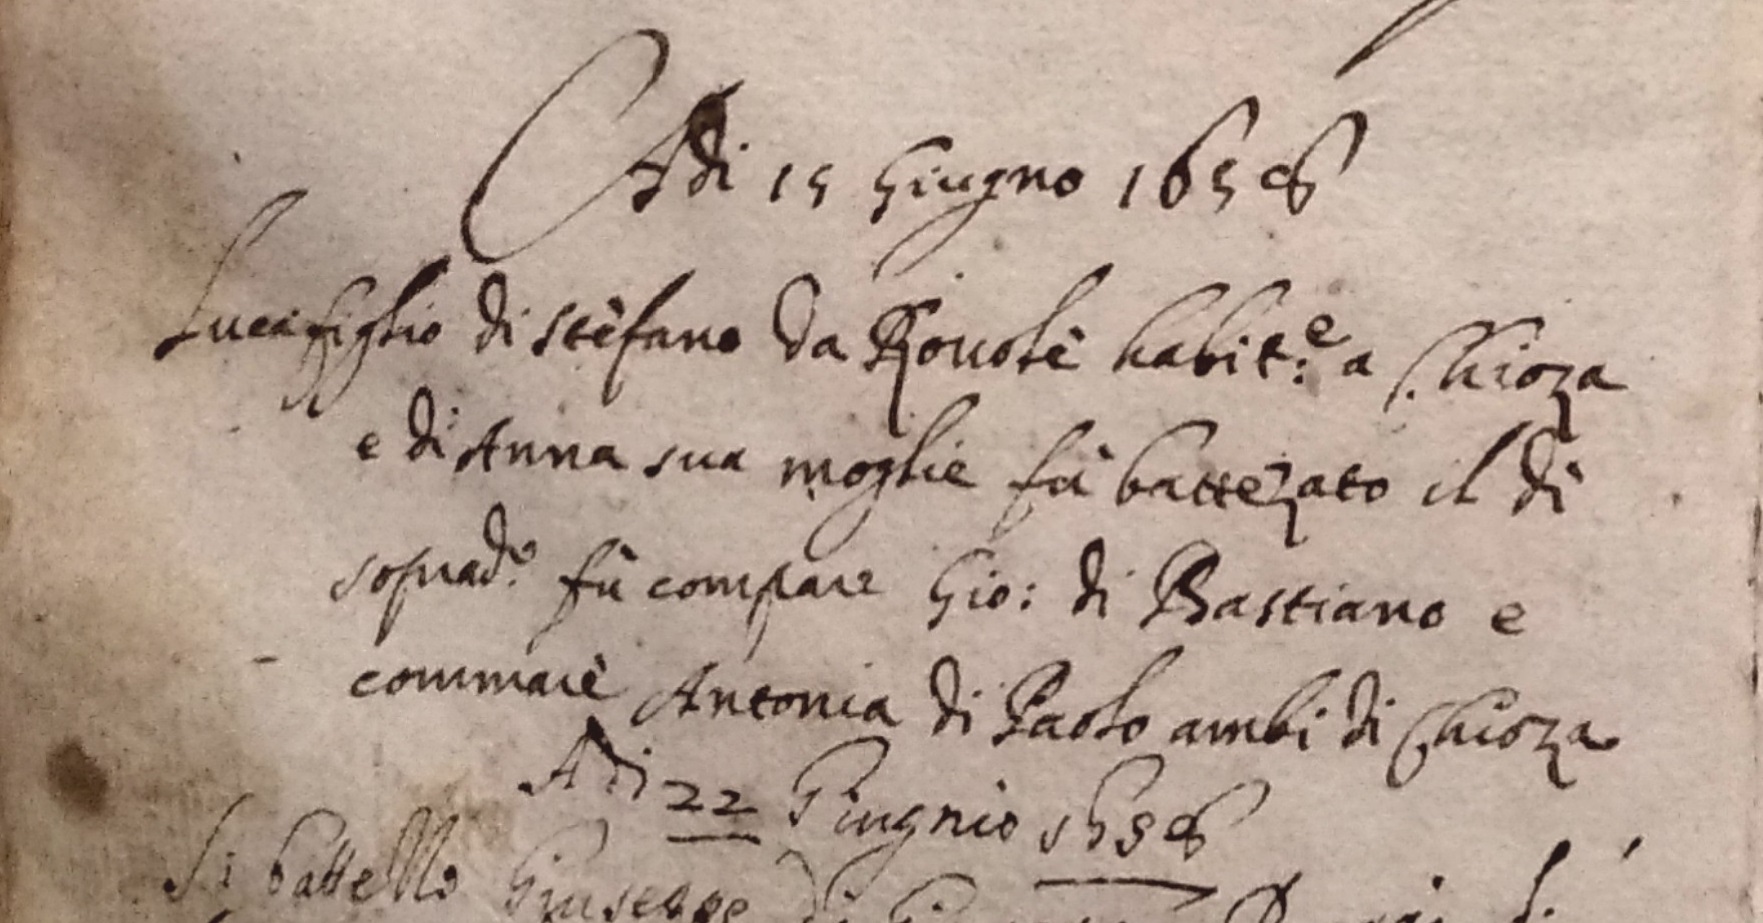 Adi 15 Giugno 1658
Luca figlio di Stefano da Rouolè habit:e a Chioza
e di Anna sua moglie fù battezato il dì
soprad.o fù compare Gio: di Bastiano e
commarè Antonia di Paolo ambi di Chioza
Adi 22 Giugnio 1658
Si battezzò Giuseppe di